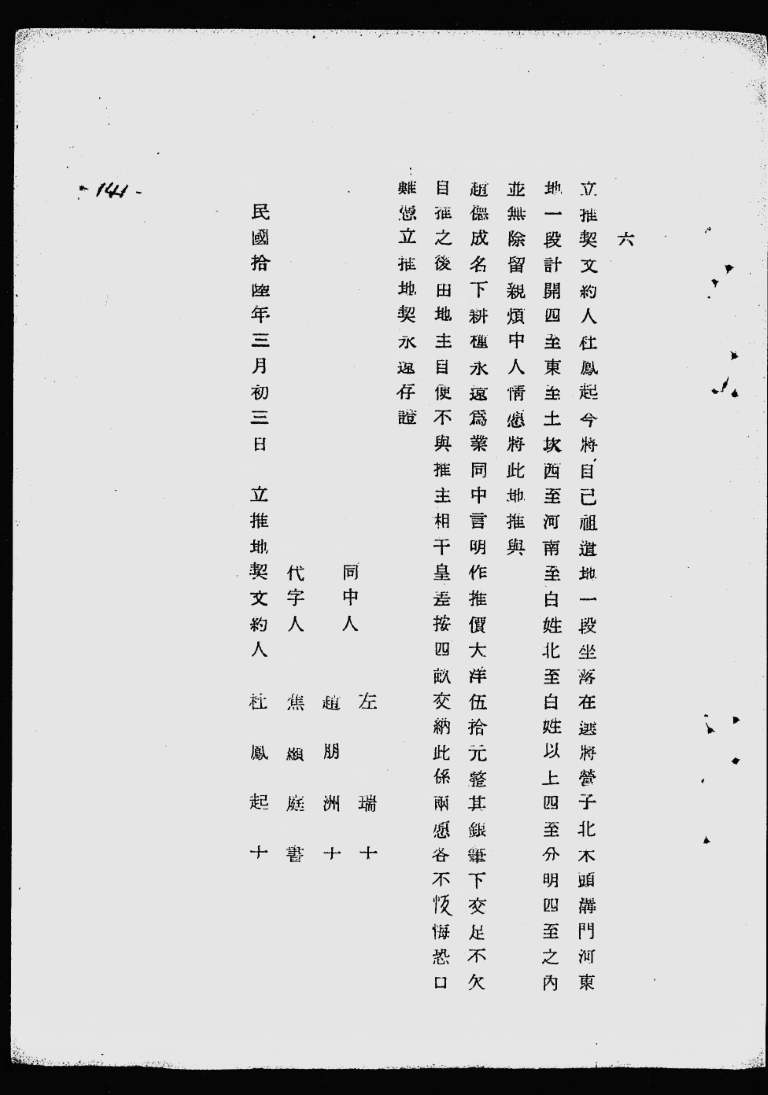 六
立推契文約人杜鳳起今將自己祖遺地一段坐落在選將營子北木頭溝門河東
地一段計開四至東至土坎西至河南至白姓北至白姓以上四至分明四至之內
並無除留親煩中人情愿將此地推與
趙德成名下耕種永遠爲業同中言明作推價大洋伍拾元整其銀筆下交足不欠
自推之後田地主自便不與推主相干皇差按四畝交納此係兩愿各不恆悔恐口
難憑立推地契永遠存證
同中人 左瑞十
趙朋洲十
代字人 焦顯庭書
民國拾陸年三月初三日 立推地契文約人 杜鳳起十
-141-